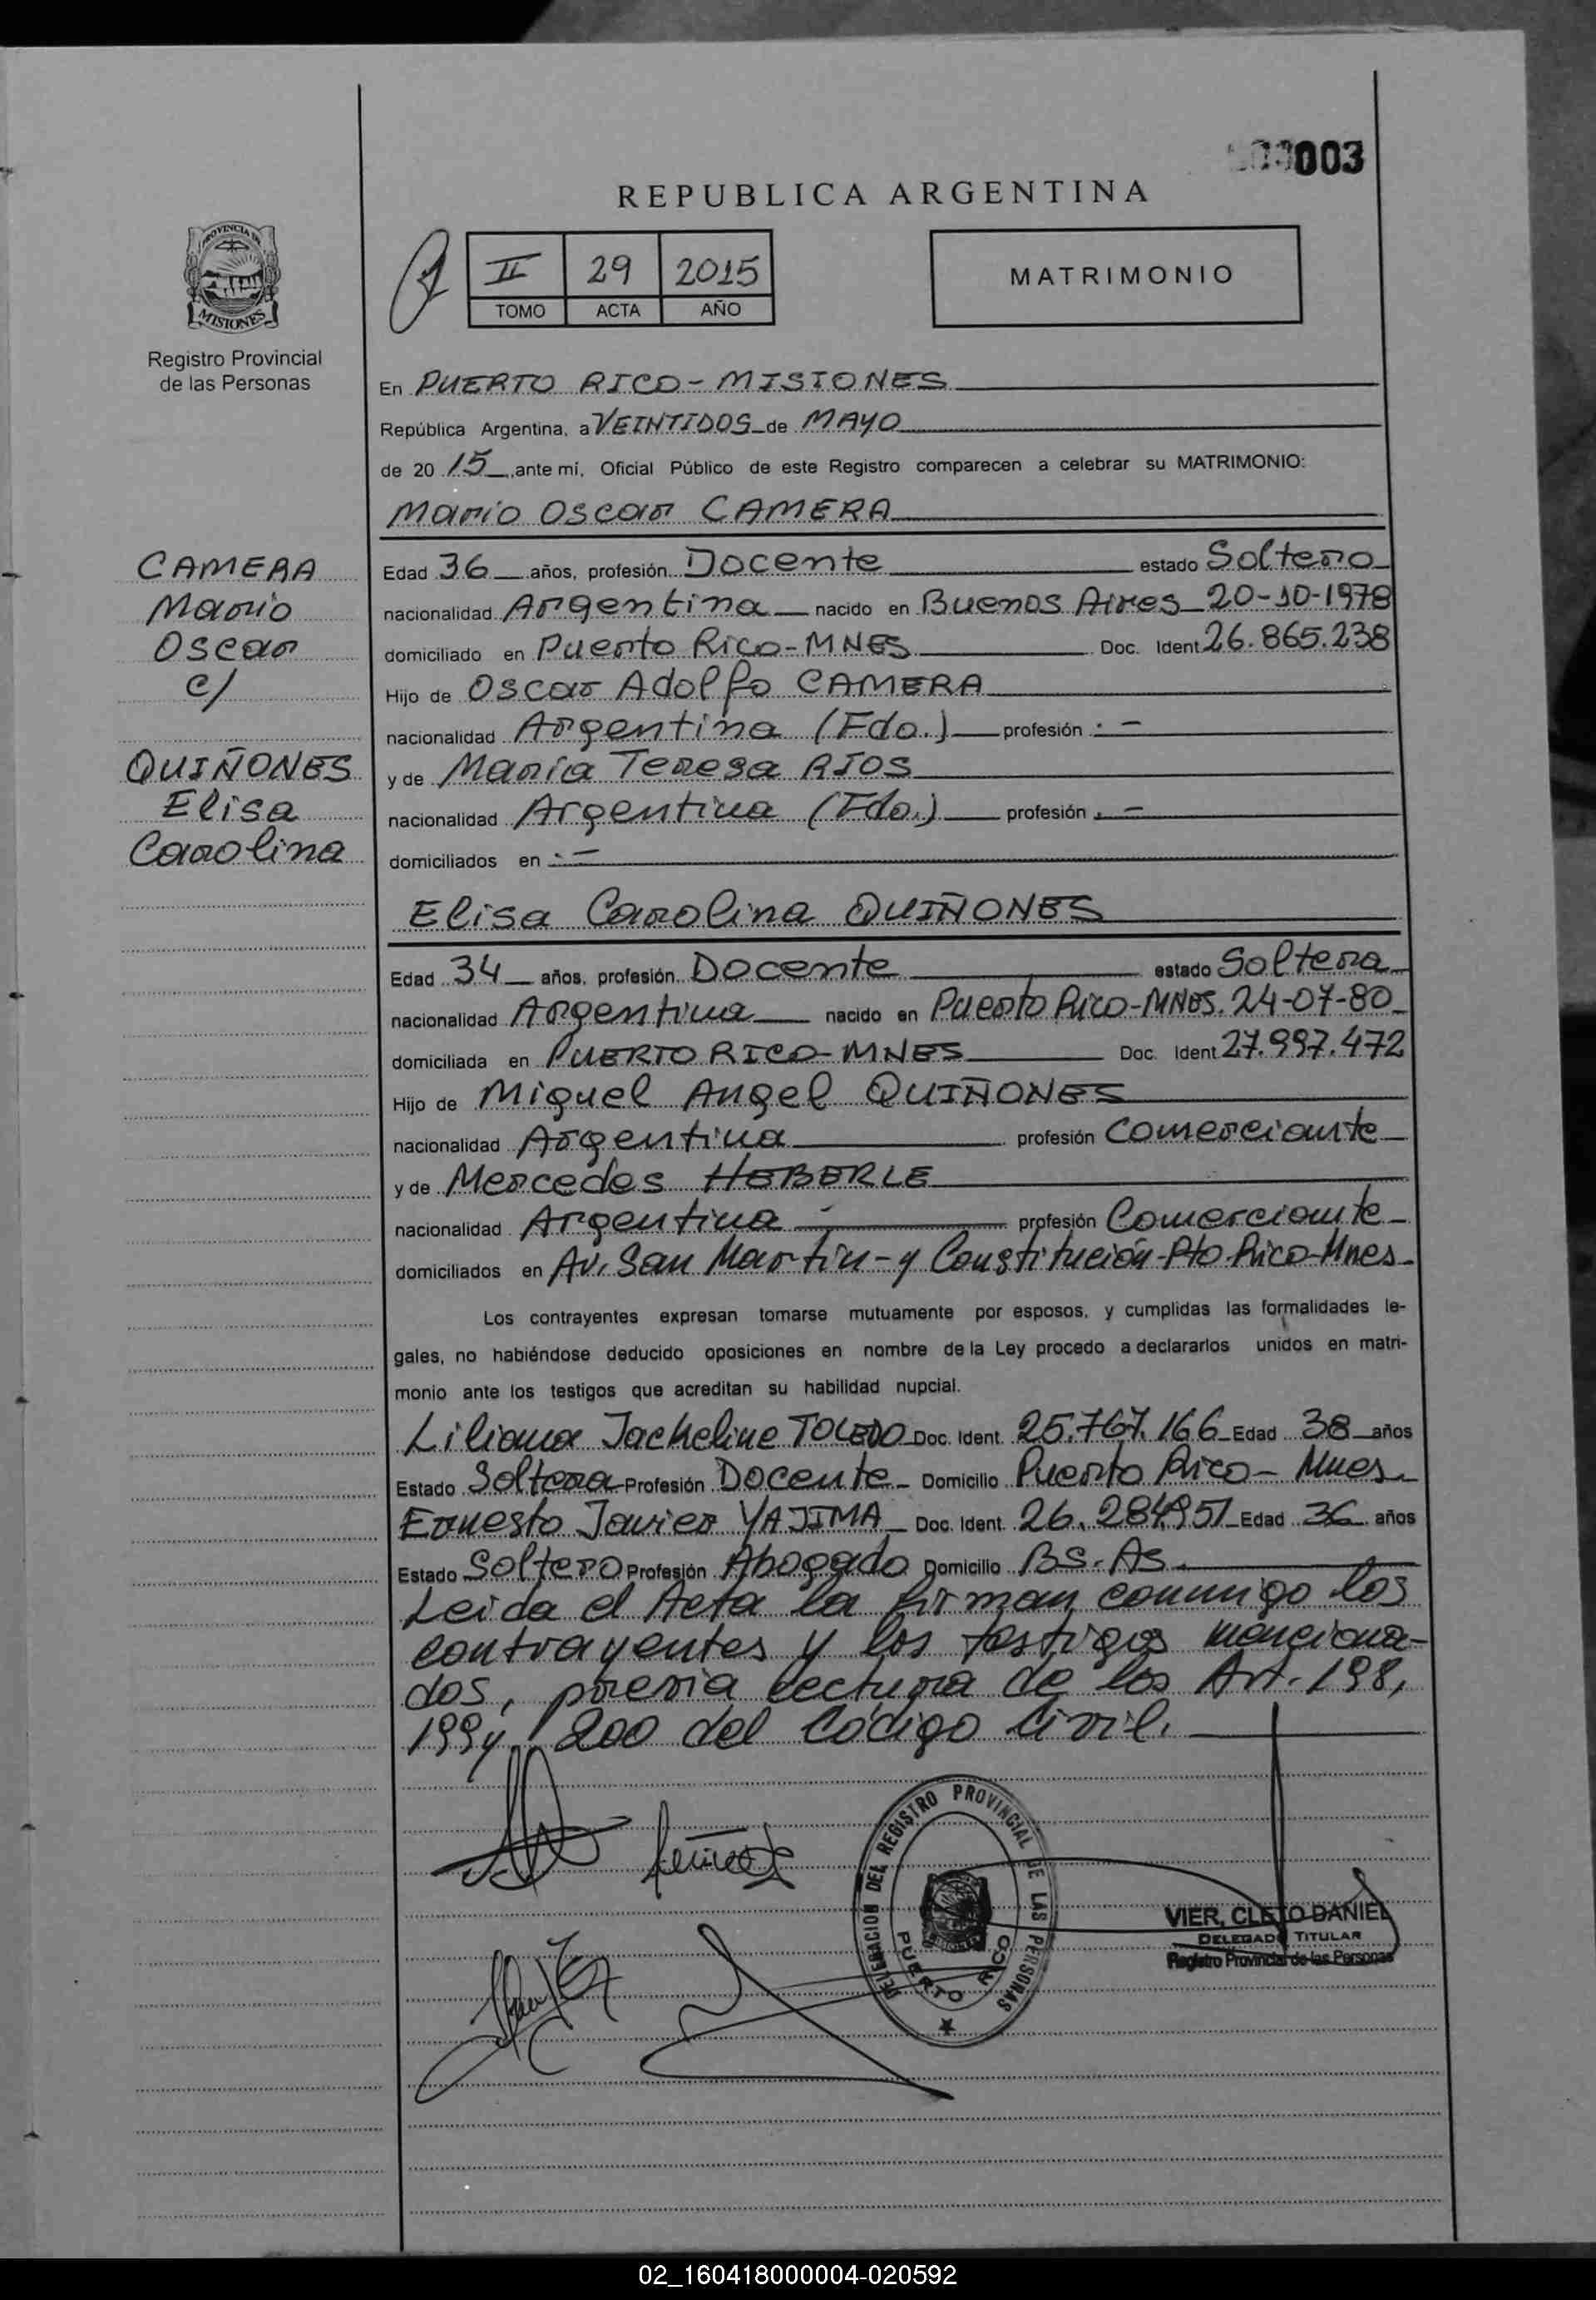 003
REPUBLICA ARGENTINA
PROVINCIA DE
MISIONES
Registro Provincial
de las Personas
II 29 2015
TOMO ACTA AÑO
MATRIMONIO
En PUERTO RICO - MISIONES
República Argentina, a VEINTIDOS de MAYO
de 20 15, ante mí, Oficial Público de este Registro comparecen a celebrar su MATRIMONIO:
Mario Oscar CAMERA
CAMERA
Mario
Oscar
c/
QUIÑONES
Elisa
Carolina
Edad 36 años, profesión Docente estado Soltero
nacionalidad Argentina nacido en Buenos Aires 20-10-1978
domiciliado en Puerto Rico - MNES Doc. Ident 26.865.238
Hijo de Oscar Adolfo CAMERA
nacionalidad Argentina (Fdo.) profesión . -
y de Maria Teresa RIOS
nacionalidad Argentina (Fdo.) profesión . -
domiciliados en . -
Elisa Carolina QUIÑONES
Edad 34 años, profesión Docente estado Soltera
nacionalidad Argentina nacido en Puerto Rico-MNES. 24-07-80
domiciliada en PUERTO RICO - MNES Doc. Ident 27.997.472
Hijo de Miguel Angel QUIÑONES
nacionalidad Argentina profesión Comerciante
y de Mercedes HEBERLE
nacionalidad Argentina - profesión Comerciante
domiciliados en Av. San Martín - y Constitución - Pto Rico - Mnes.
Los contrayentes expresan tomarse mutuamente por esposos, y cumplidas las formalidades le-
gales, no habiéndose deducido oposiciones en nombre de la Ley procedo a declararlos unidos en matri-
monio ante los testigos que acreditan su habilidad nupcial.
Liliana Jackeline TOLEDO Doc. Ident. 25.767.166 Edad 38 años
Estado Soltera Profesión Docente Domicilio Puerto Rico - Mnes.
Ernesto Javier YAJIMA Doc. Ident. 26.284.951 Edad 36 años
Estado Soltero Profesión Abogado Domicilio BS. AS.
Leida el Acta la firman conmigo los
contrayentes y los testigos menciona-
dos, previa lectura de los Art. 198,
199 y 200 del Código Civil.
DELEGACION DEL REGISTRO PROVINCIAL DE LAS PERSONAS
PUERTO RICO
VIER, CLETO DANIEL
DELEGADO TITULAR
Registro Provincial de las Personas
02_160418000004-020592